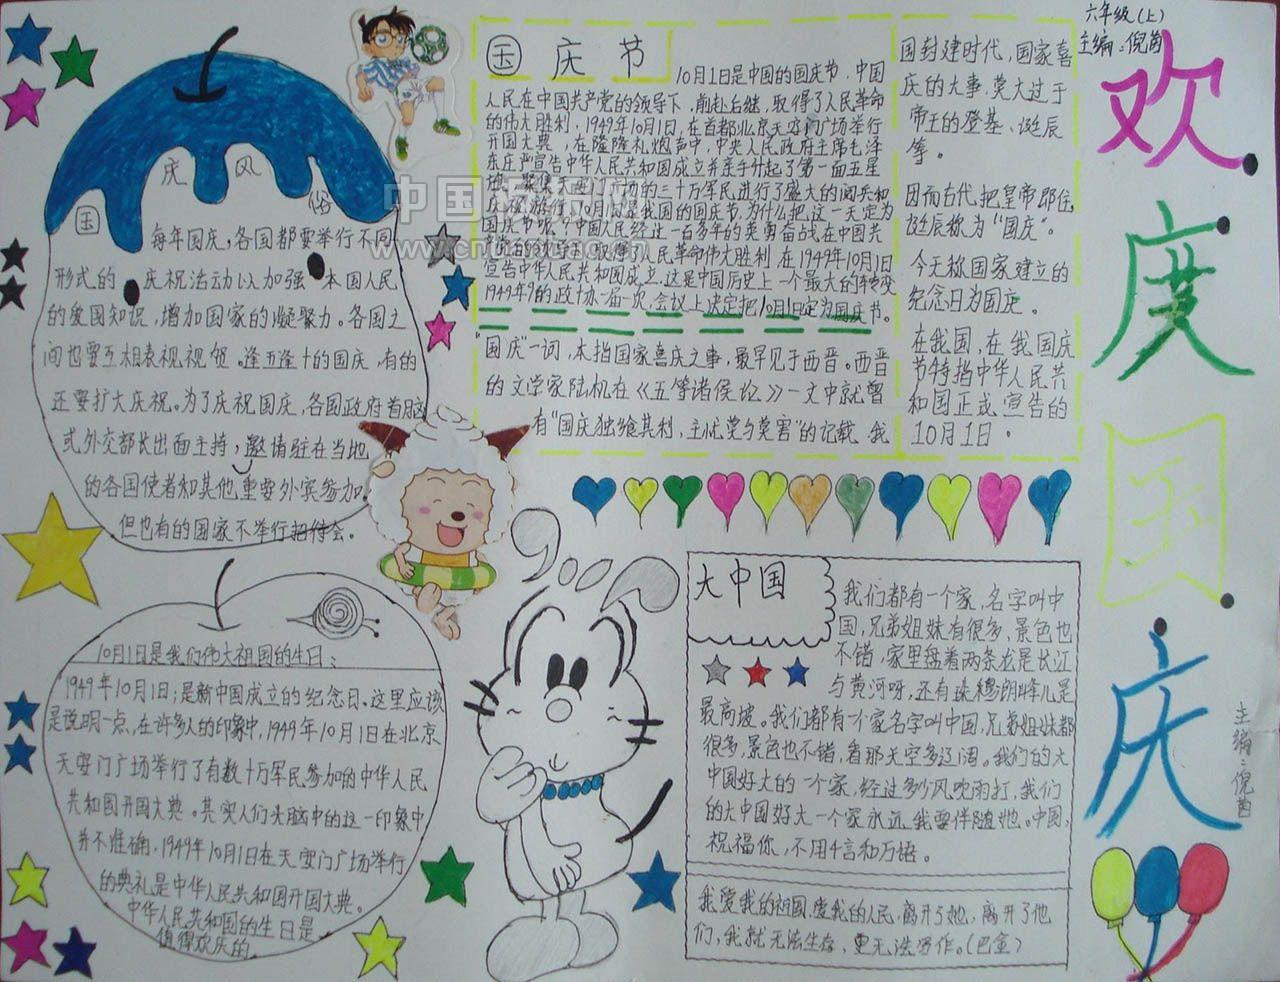 六年级(上)
主编:倪茜
欢
度
国
庆
主编:倪茜
国庆风俗
每年国庆,各国都要举行不同
形式的庆祝活动以加强本国人民
的爱国知识,增加国家的凝聚力。各国之
间也要互相表视视贺。逢五逢十的国庆,有的
还要扩大庆祝。为了庆祝国庆,各国政府首脑
或外交部长出面主持,邀请驻在当地
的各国使者和其他重要外宾参加。
但也有的国家不举行招待会。
国庆节
10月1日是中国的国庆节.中国
人民在中国共产党的领导下,前赴后继,取得了人民革命
的伟大胜利,1949年10月1日,在首都北京天安门广场举行
开国大典,在隆隆礼炮声中,中央人民政府主席毛泽
东庄严宣告中华人民共和国成立并亲手升起了第一面五星
广场的三十万军民进行了盛大的阅兵和
我国的国庆节.为什么把这一天定为
国庆节呢?中国人民经过一百多年的英勇奋战,在中国共
产党的领导下,取得了人民革命伟大胜利.在1949年10月1日
宣告中华人民共和国成立,这是中国历史上一个最大的转变
1949年9的政协一届一次会议上决定把10月1日定为国庆节。
“国庆”一词,本指国家喜庆之事,最早见于西晋。西晋
的文学家陆机在《五等诸侯论》一文中就曾
有“国庆独飨其利,主忧莫与其害”的记载、我
国封建时代,国家喜
庆的大事,莫大过于
帝王的登基、诞辰
等。
因而古代把皇帝即位、
诞辰称为“国庆”。
今天称国家建立的
纪念日为国庆。
在我国,在我国庆
节特指中华人民共
和国正式宣告的
10月1日。
10月1日是我们伟大祖国的生日:
1949年10月1日;是新中国成立的纪念日.这里应该
是说明一点,在许多人的印象中,1949年10月1日在北京
天安门广场举行了有数十万军民参加的中华人民
共和国开国大典。其实人们头脑中的这一印象中
并不准确,1949年10月1日在天安门广场举行
的典礼是中华人民共和国开国大典。
中华人民共和国的生日是
值得欢乐的。
大中国
我们都有一个家,名字叫中
国,兄弟姐妹有很多,景色也
不错,家里盘着两条龙是长江
与黄河呀,还有珠穆朗峰儿是
最高坡。我们都有一个家名字叫中国,兄弟姐妹都
很多,景色也不错,看那天空多辽阔。我们的大
中国好大的一个家,经过多少风吹雨打,我们
的大中国好大一个家永远,我要伴随她。中国,
祝福你,不用千言和万语。
我爱我的祖国,爱我的人民,离开了她,离开了他
们,我就无法生存,更无法写作。(巴金)